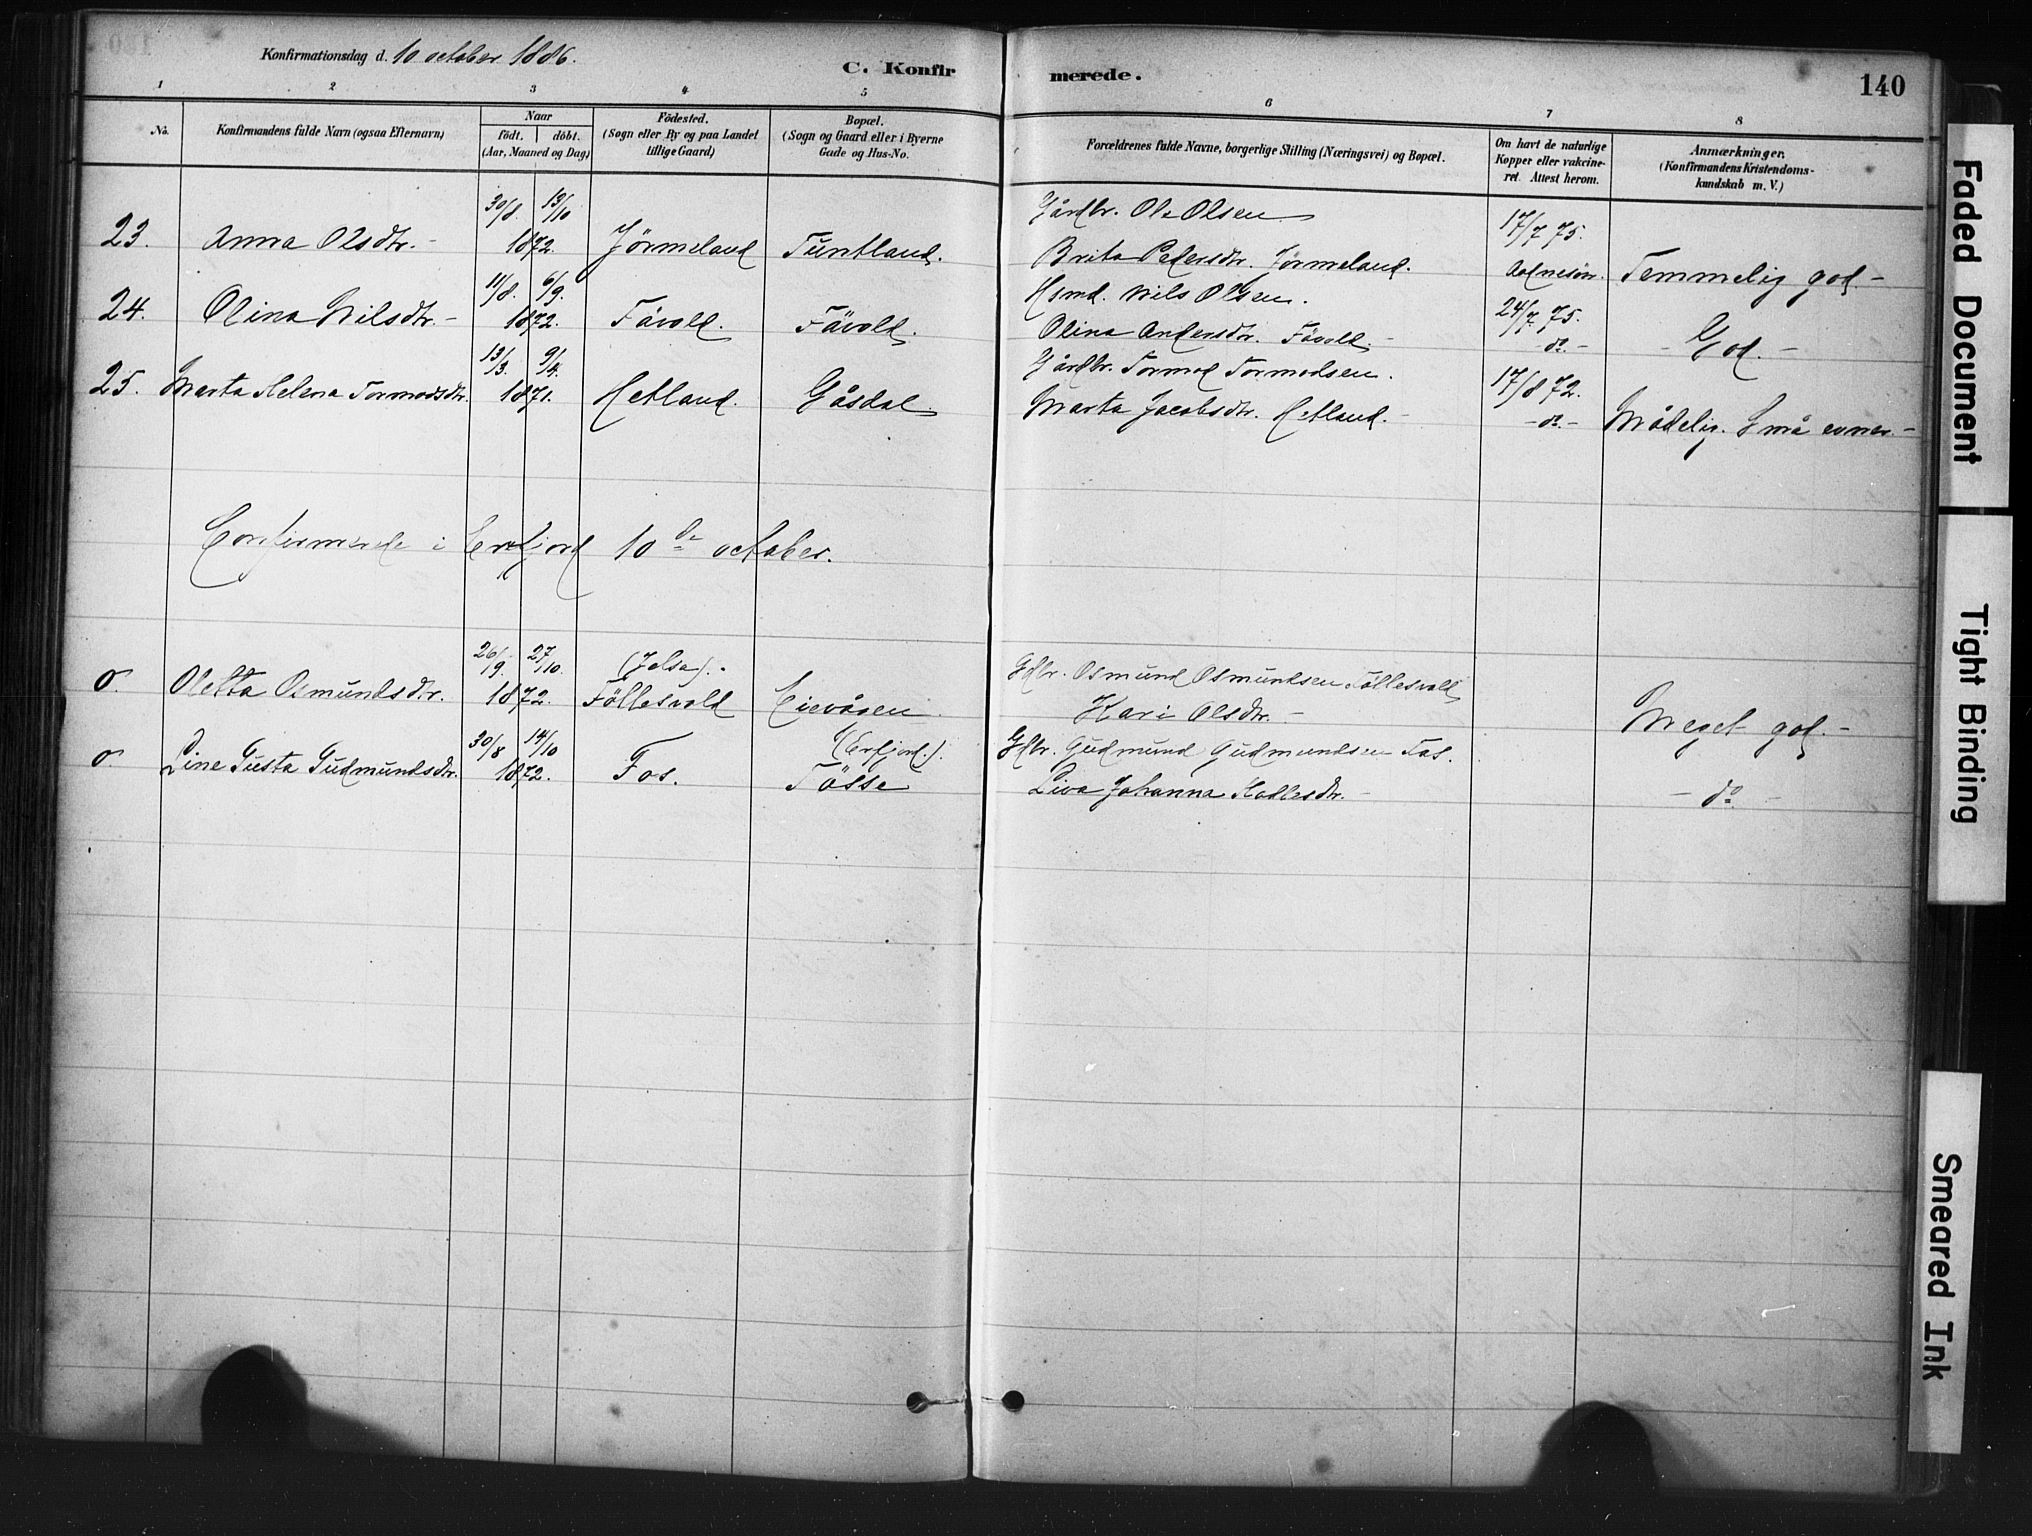 Konfirmationsdag d. 10 october 1886.
C. Konfirmerede.
140
1 2 3 4 5 6 7 8
No.
Konfirmandens fulde Navn (ogsaa Efternavn)
Naar
födt. döbt.
(Aar, Maaned og Dag)
Födested.
(Sogn eller By og paa Landet
tillige Gaard)
Bopæl.
(Sogn og Gaard eller i Byerne
Gade og Hus-No.
Forældrenes fulde Navne, borgerlige Stilling (Næringsvei) og Bopæl.
Om havt de naturlige
Kopper eller vakcine-
ret. Attest herom.
Anmærkninger.
(Konfirmandens Kristendoms-
kundskab m. V.)
30/8. 13/10 Gårdbr. Ole Olsen 17/7 75.
23. Anna Olsdtr. - 1872. Jörmeland Tuntland. Brita Pedersdtr. Jörmeland. Temmelig god -
11/8. 6/9. Hsmd. Nils Olsen. 24/7 75.
24. Olina Nilsdtr. - 1872. Fävold. Fävold. Olina Andersdtr. Fävold. - - do. - - God. -
13/3. 9/4. Gårdbr. Tormod Tormodsen. 17/8 72.
25. Marta Helena Tormodsdtr. 1871. Hetland. Gåsdal Marta Jacobsdtr. Hetland. - - do. - Mådelig. Små evner. -
Confirmerede i Erfjord 10de october.
26/9. 27/10. (Jelsa). Gdbr. Osmund Osmundsen Föllesvold
o. Oletta Osmundsdtr. 1872. Föllesvold Eievågen Kari Olsdtr. - Meget god. -
30/8 14/10 (Erfjord). Gdbr. Gudmund Gudmundsen Fos.
o. Line Gusta Gudmundsdtr. 1872. Fos. Tösse Liva Johanna Kolbesdtr. - - do -
Faded Document
Tight Binding
Smeared Ink